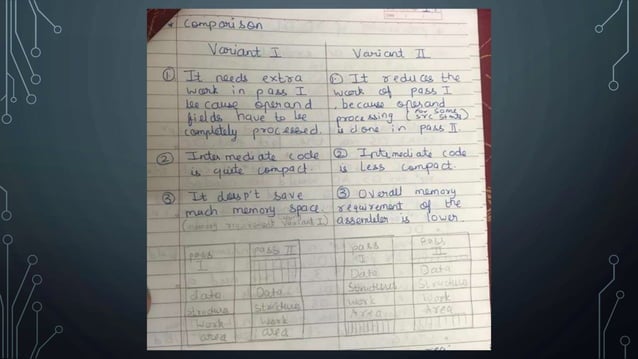 * Comparison
Variant I
① It needs extra
work in pass I
because operand
fields have to be
completely processed.
② Intermediate code
is quite compact.
③ It doesn't save
much memory space.
Variant II
① It reduces the
work of pass I
, because operand
processing (for some
src stmts)
is done in pass II.
② Intemediate code
is less compact.
③ Overall memory
requirement of the
assembler is lower.
pass I
pass II
Data
Structures
Work
area
Data
Structures
Work
area
pass I
Pass II
Data
Structures
Work
Area
Data
Structures
Work
Area